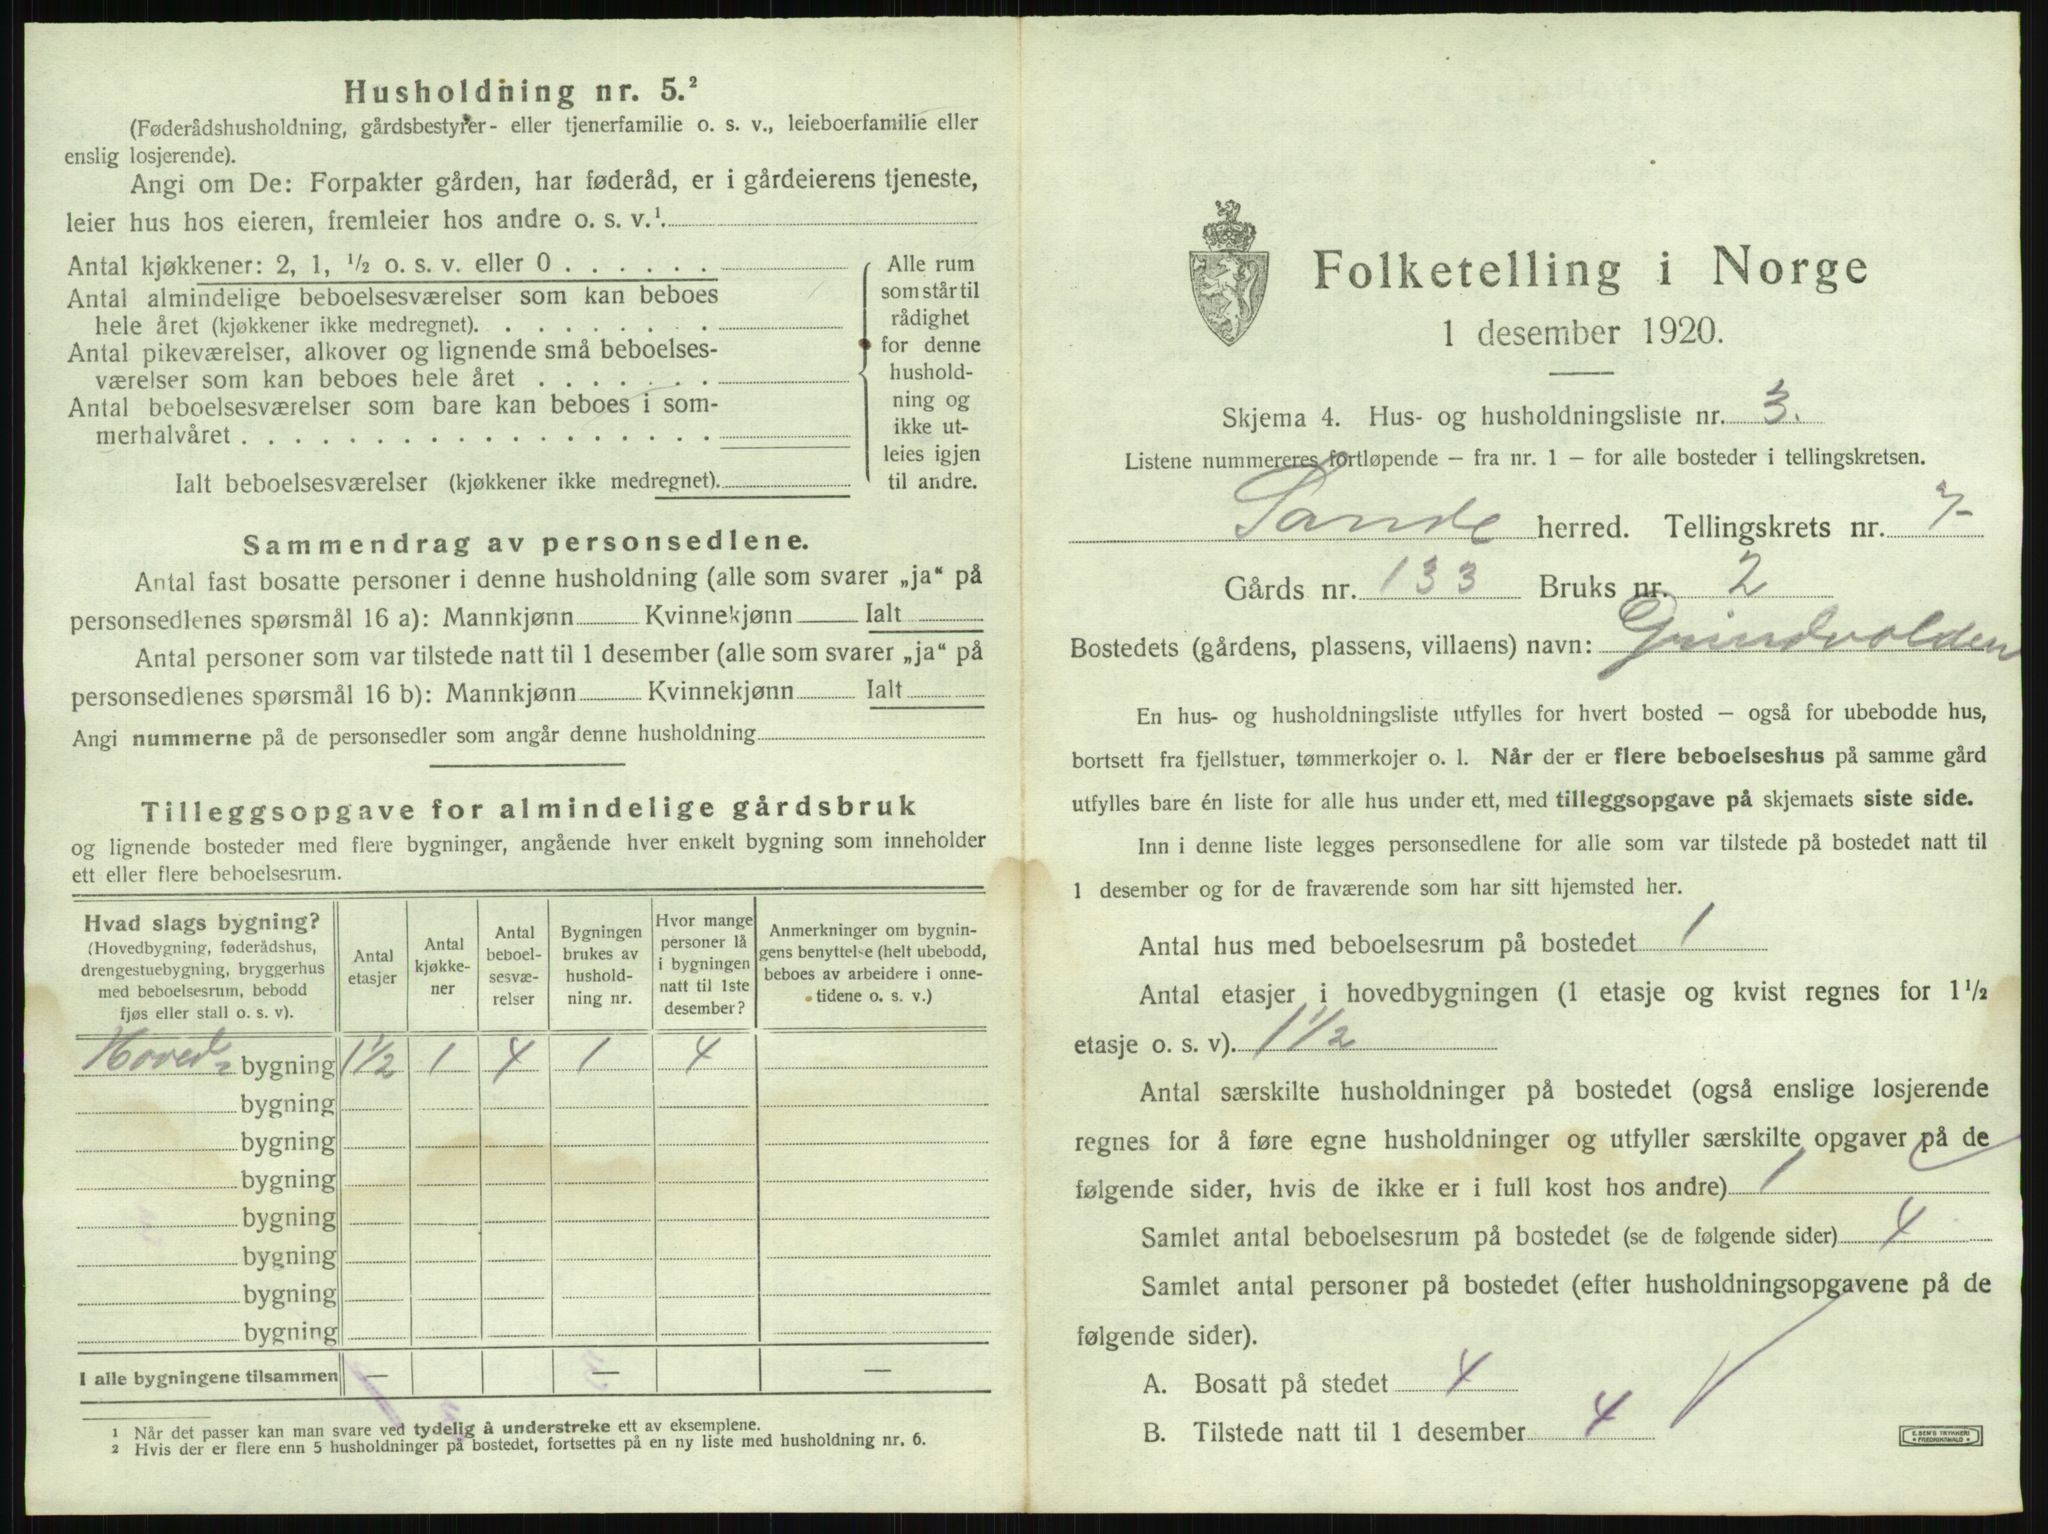 Husholdning nr. 5.²
(Føderådshusholdning, gårdsbestyrer- eller tjenerfamilie o. s. v., leieboerfamilie eller
enslig losjerende).
Angi om De: Forpakter gården, har føderåd, er i gårdeierens tjeneste,
leier hus hos eieren, fremleier hos andre o. s. v.¹
Antal kjøkkener: 2, 1, ½ o. s. v. eller 0 . . . . . .
Antal almindelige beboelsesværelser som kan beboes
hele året (kjøkkener ikke medregnet). . . . . . . . .
Antal pikeværelser, alkover og lignende små beboelses-
værelser som kan beboes hele året . . . . . . .
Antal beboelsesværelser som bare kan beboes i som-
merhalvåret . . . . . . . . . . . . . . . . . .
Ialt beboelsesværelser (kjøkkener ikke medregnet).
Alle rum
som står til
rådighet
for denne
hushold-
ning og
ikke ut-
leies igjen
til andre.
Sammendrag av personsedlene.
Antal fast bosatte personer i denne husholdning (alle som svarer „ja“ på
personsedlenes spørsmål 16 a): Mannkjønn Kvinnekjønn Ialt
Antal personer som var tilstede natt til 1 desember (alle som svarer „ja“ på
personsedlenes spørsmål 16 b): Mannkjønn Kvinnekjønn Ialt
Angi nummerne på de personsedler som angår denne husholdning
Tilleggsopgave for almindelige gårdsbruk
og lignende bosteder med flere bygninger, angående hver enkelt bygning som inneholder
ett eller flere beboelsesrum.
Hvad slags bygning?
(Hovedbygning, føderådshus,
drengestuebygning, bryggerhus
med beboelsesrum, bebodd
fjøs eller stall o. s. v).
Antal
etasjer
Antal
kjøkke-
ner
Antal
beboel-
sesvæ-
relser
Bygningen
brukes av
hushold-
ning nr.
Hvor mange
personer lå
i bygningen
natt til 1ste
desember?
Anmerkninger om bygnin-
gens benyttelse (helt ubebodd,
beboes av arbeidere i onne-
tidene o. s. v.)
Hoved- bygning 1½ 1 4 1 4
bygning
bygning
bygning
bygning
bygning
bygning
bygning
I alle bygningene tilsammen — — —
¹ Når det passer kan man svare ved tydelig å understreke ett av eksemplene.
² Hvis der er flere enn 5 husholdninger på bostedet, fortsettes på en ny liste med husholdning nr. 6.
Folketelling i Norge
1 desember 1920.
Skjema 4. Hus- og husholdningsliste nr. 3.
Listene nummereres fortløpende – fra nr. 1 – for alle bosteder i tellingskretsen.
Sande herred. Tellingskrets nr. 7-
Gårds nr. 133 Bruks nr. 2
Bostedets (gårdens, plassens, villaens) navn: Grindvolden
En hus- og husholdningsliste utfylles for hvert bosted – også for ubebodde hus,
bortsett fra fjellstuer, tømmerkojer o. l. Når der er flere beboelseshus på samme gård
utfylles bare én liste for alle hus under ett, med tilleggsopgave på skjemaets siste side.
Inn i denne liste legges personsedlene for alle som var tilstede på bostedet natt til
1 desember og for de fraværende som har sitt hjemsted her.
Antal hus med beboelsesrum på bostedet 1
Antal etasjer i hovedbygningen (1 etasje og kvist regnes for 1½
etasje o. s. v). 1½
Antal særskilte husholdninger på bostedet (også enslige losjerende
regnes for å føre egne husholdninger og utfyller særskilte opgaver på de
følgende sider, hvis de ikke er i full kost hos andre) 1
Samlet antal beboelsesrum på bostedet (se de følgende sider) 4
Samlet antal personer på bostedet (efter husholdningsopgavene på de
følgende sider).
A. Bosatt på stedet 4
B. Tilstede natt til 1 desember 4
E. SEM'S TRYKKERI
FREDRIKSHALD